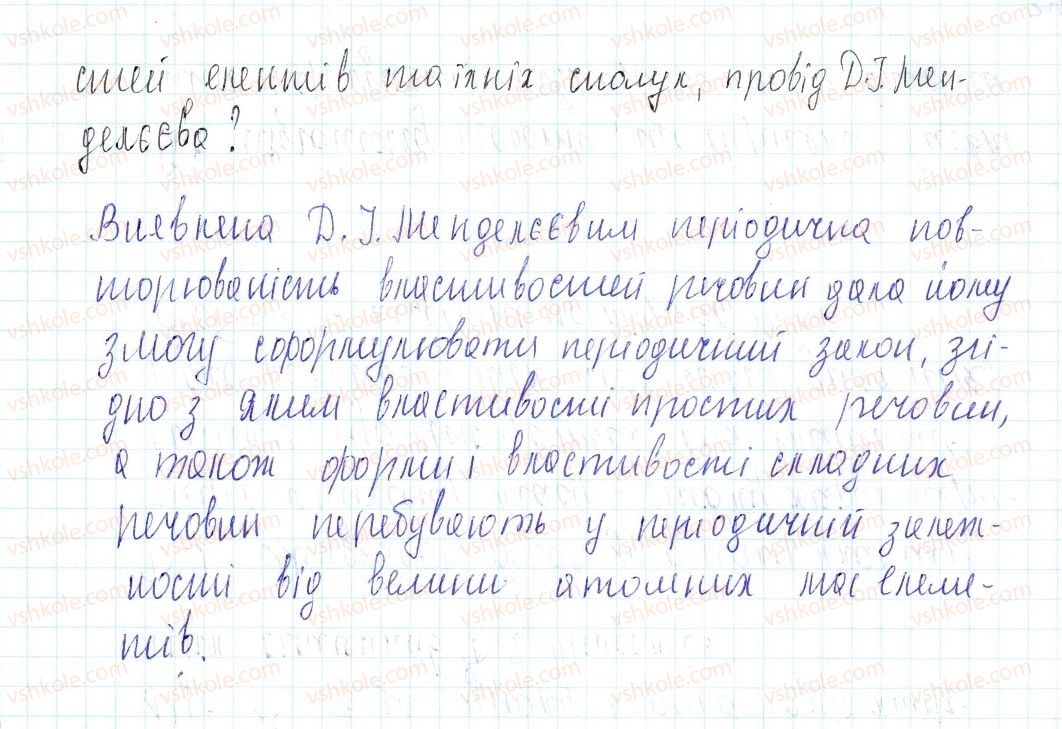 стей елентів та їхніх сполук, провід Д.І. Мен-
делєєва?
Виявлена Д.І. Менделєєвим періодична пов-
торюваність властивостей речовин дала йому
змогу сформулювати періодичний закон, згі-
дно з яким властивості простих речовин,
а також форми і властивості складних
речовин перебувають у періодичній залеж-
ності від величи атомних мас елеме-
тів.